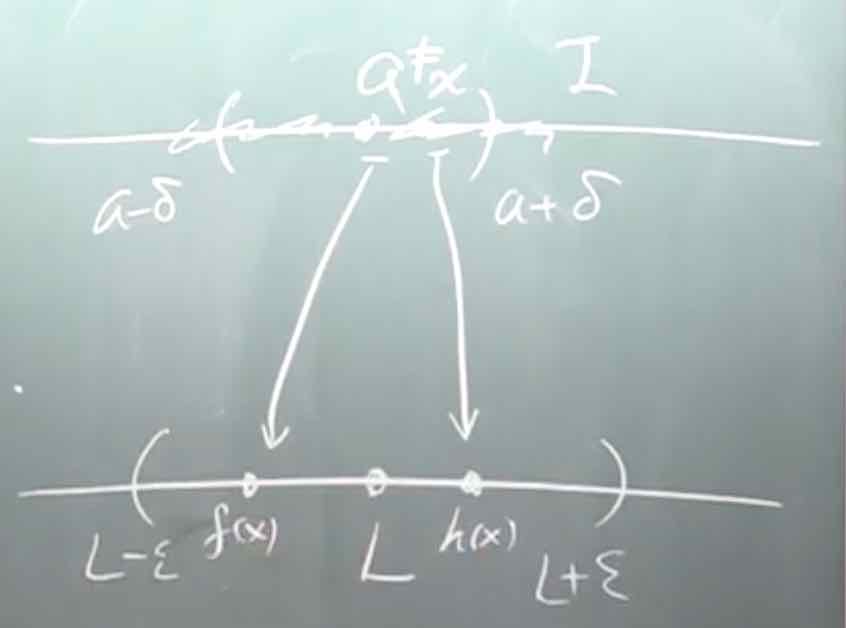 a≠x I
( )
a-δ a+δ
( )
L-ε f(x) L h(x) L+ε